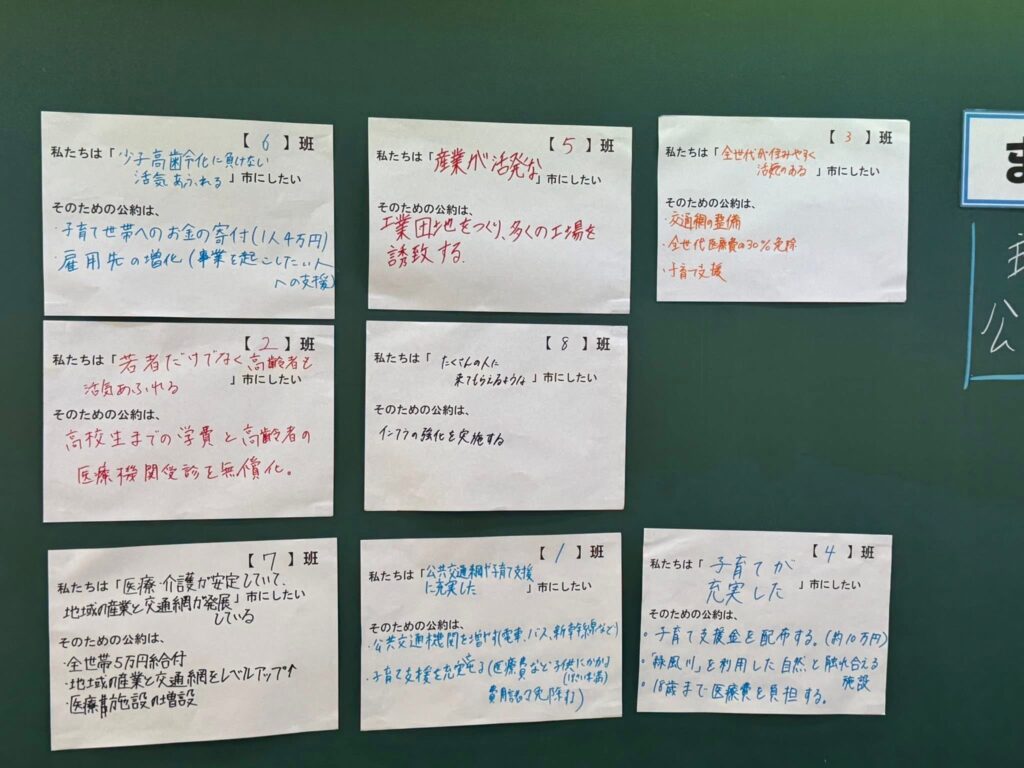 【 6 】班
私たちは「少子高齢化に負けない
活気あふれる 」市にしたい
そのための公約は、
・子育て世帯へのお金の寄付(1人4万円)
・雇用先の増化(事業を起こしたい人
への支援)
【 5 】班
私たちは「産業が活発な
」市にしたい
そのための公約は、
工業団地をつくり、多くの工場を
誘致する.
【 3 】班
私たちは「全世代が住みやすく
活気のある 」市にしたい
そのための公約は、
・交通網の整備
・全世代医療費の30%免除
・子育て支援
【 2 】班
私たちは「若者だけでなく高齢者も
活気あふれる 」市にしたい
そのための公約は、
高校生までの学費と高齢者の
医療機関受診を無償化。
【 8 】班
私たちは「たくさんの人に
来てもらえるような 」市にしたい
そのための公約は、
インフラの強化を実施する
【 7 】班
私たちは「医療・介護が安定していて、
地域の産業と交通網が発展 」市にしたい
している
そのための公約は、
・全世帯5万円給付
・地域の産業と交通網をレベルアップ↑
・医療施設の増設
【 1 】班
私たちは「公共交通網や子育て支援
に充実した 」市にしたい
そのための公約は、
・公共交通機関を増やす(電車、バス、新幹線など)
・子育て支援を充実する(医療費など子供にかかる
費用を免除)
【 4 】班
私たちは「子育てが
充実した 」市にしたい
そのための公約は、
・子育て支援金を配布する。(約10万円)
・「綾風川」を利用した自然と触れ合える
施設
・18歳まで医療費を負担する。
ま
公